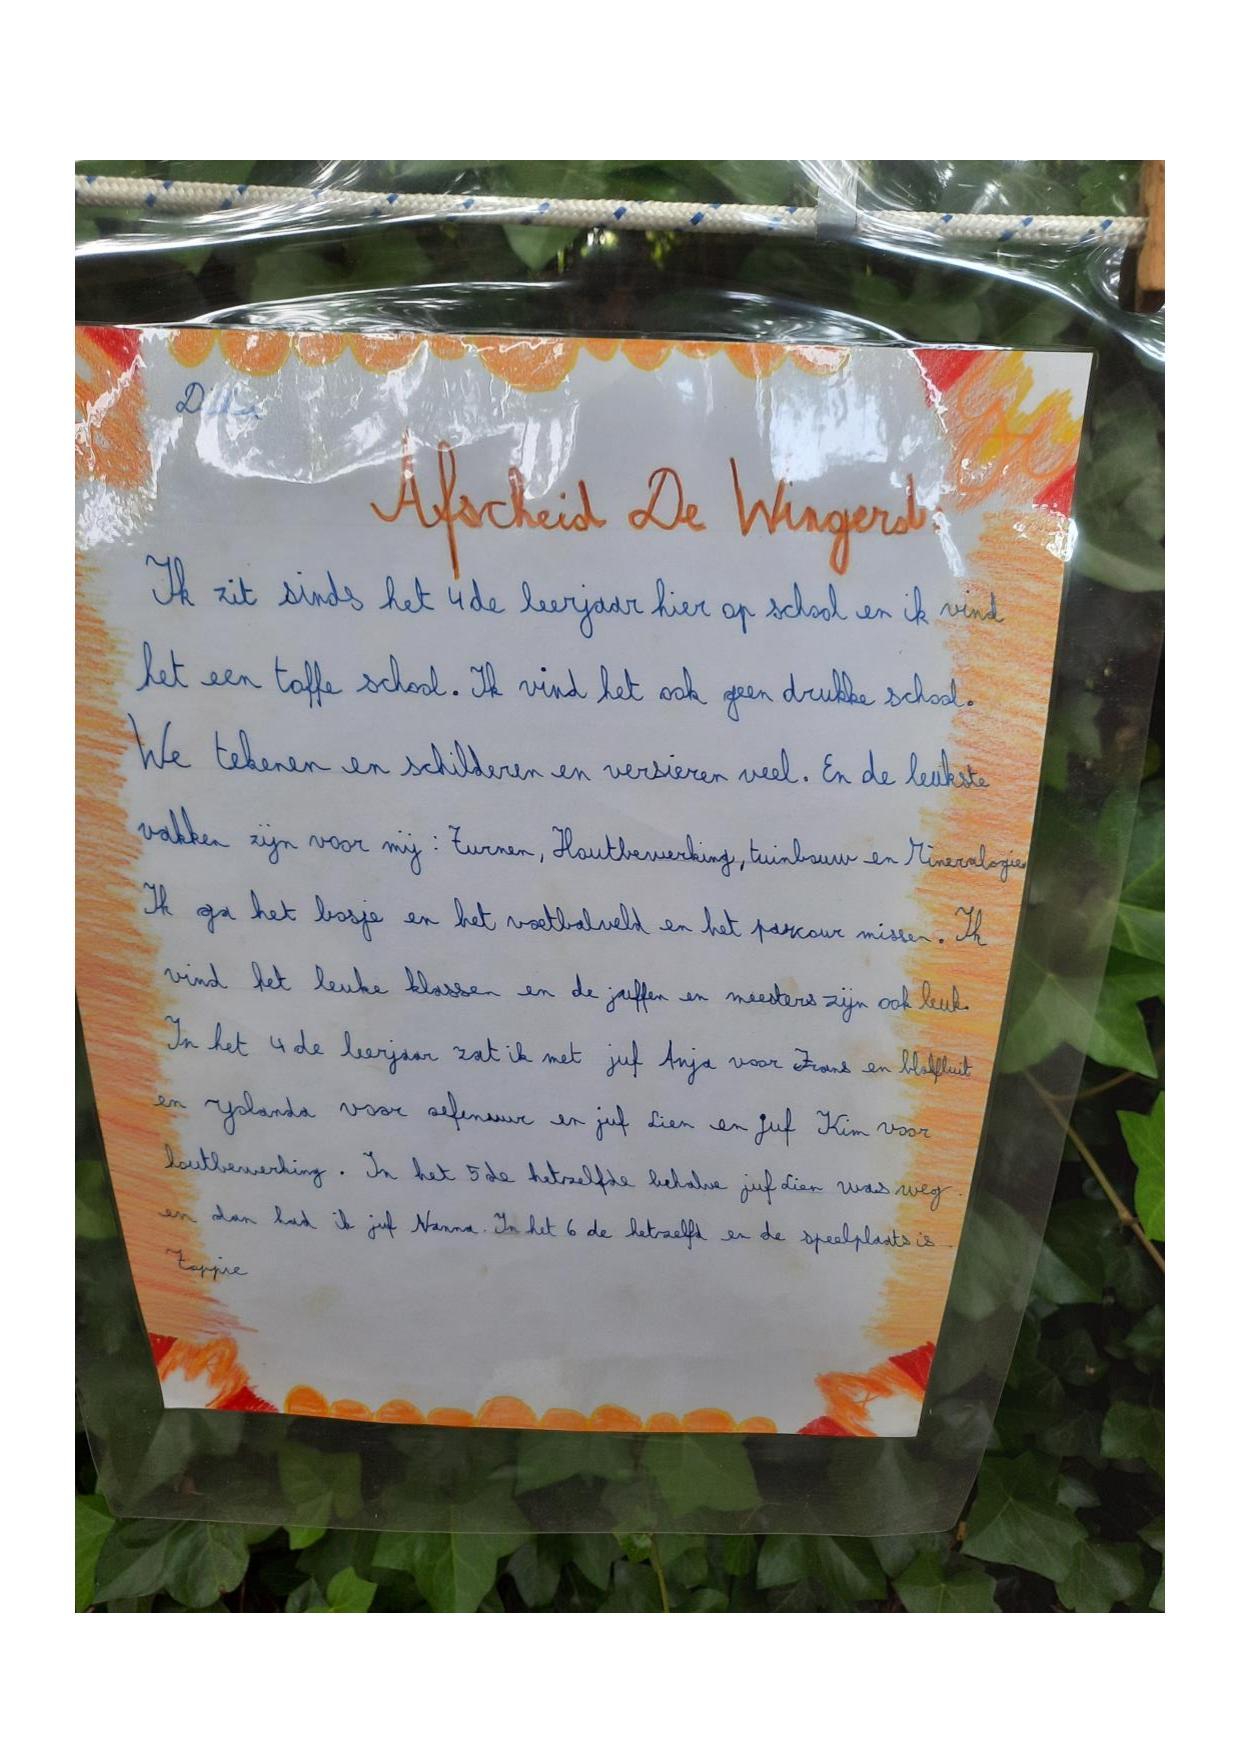 Afscheid De Wingerd.
Ik zit sinds het 4de leerjaar hier op school en ik vind
het een toffe school. Ik vind het ook geen drukke school.
We tekenen en schilderen en versieren veel. En de leukste
vakken zijn voor mij: Turnen, Houtbewerking, tuinbouw en Mineralogie
Ik ga het bosje en het voetbalveld en het parcour missen. Ik
vind het leuke klassen en de juffen en meesters zijn ook leuk.
In het 4de leerjaar zat ik met juf Anja voor Frans en blokfluit
en Yolanda voor oefenuur en juf Lien en Juf Kim voor
houtbewerking. In het 5de hetzelfde behalve juf Lien was weg.
en dan had ik juf Nanna. In het 6 de hetzelfd en de speelplaats is
Toppie